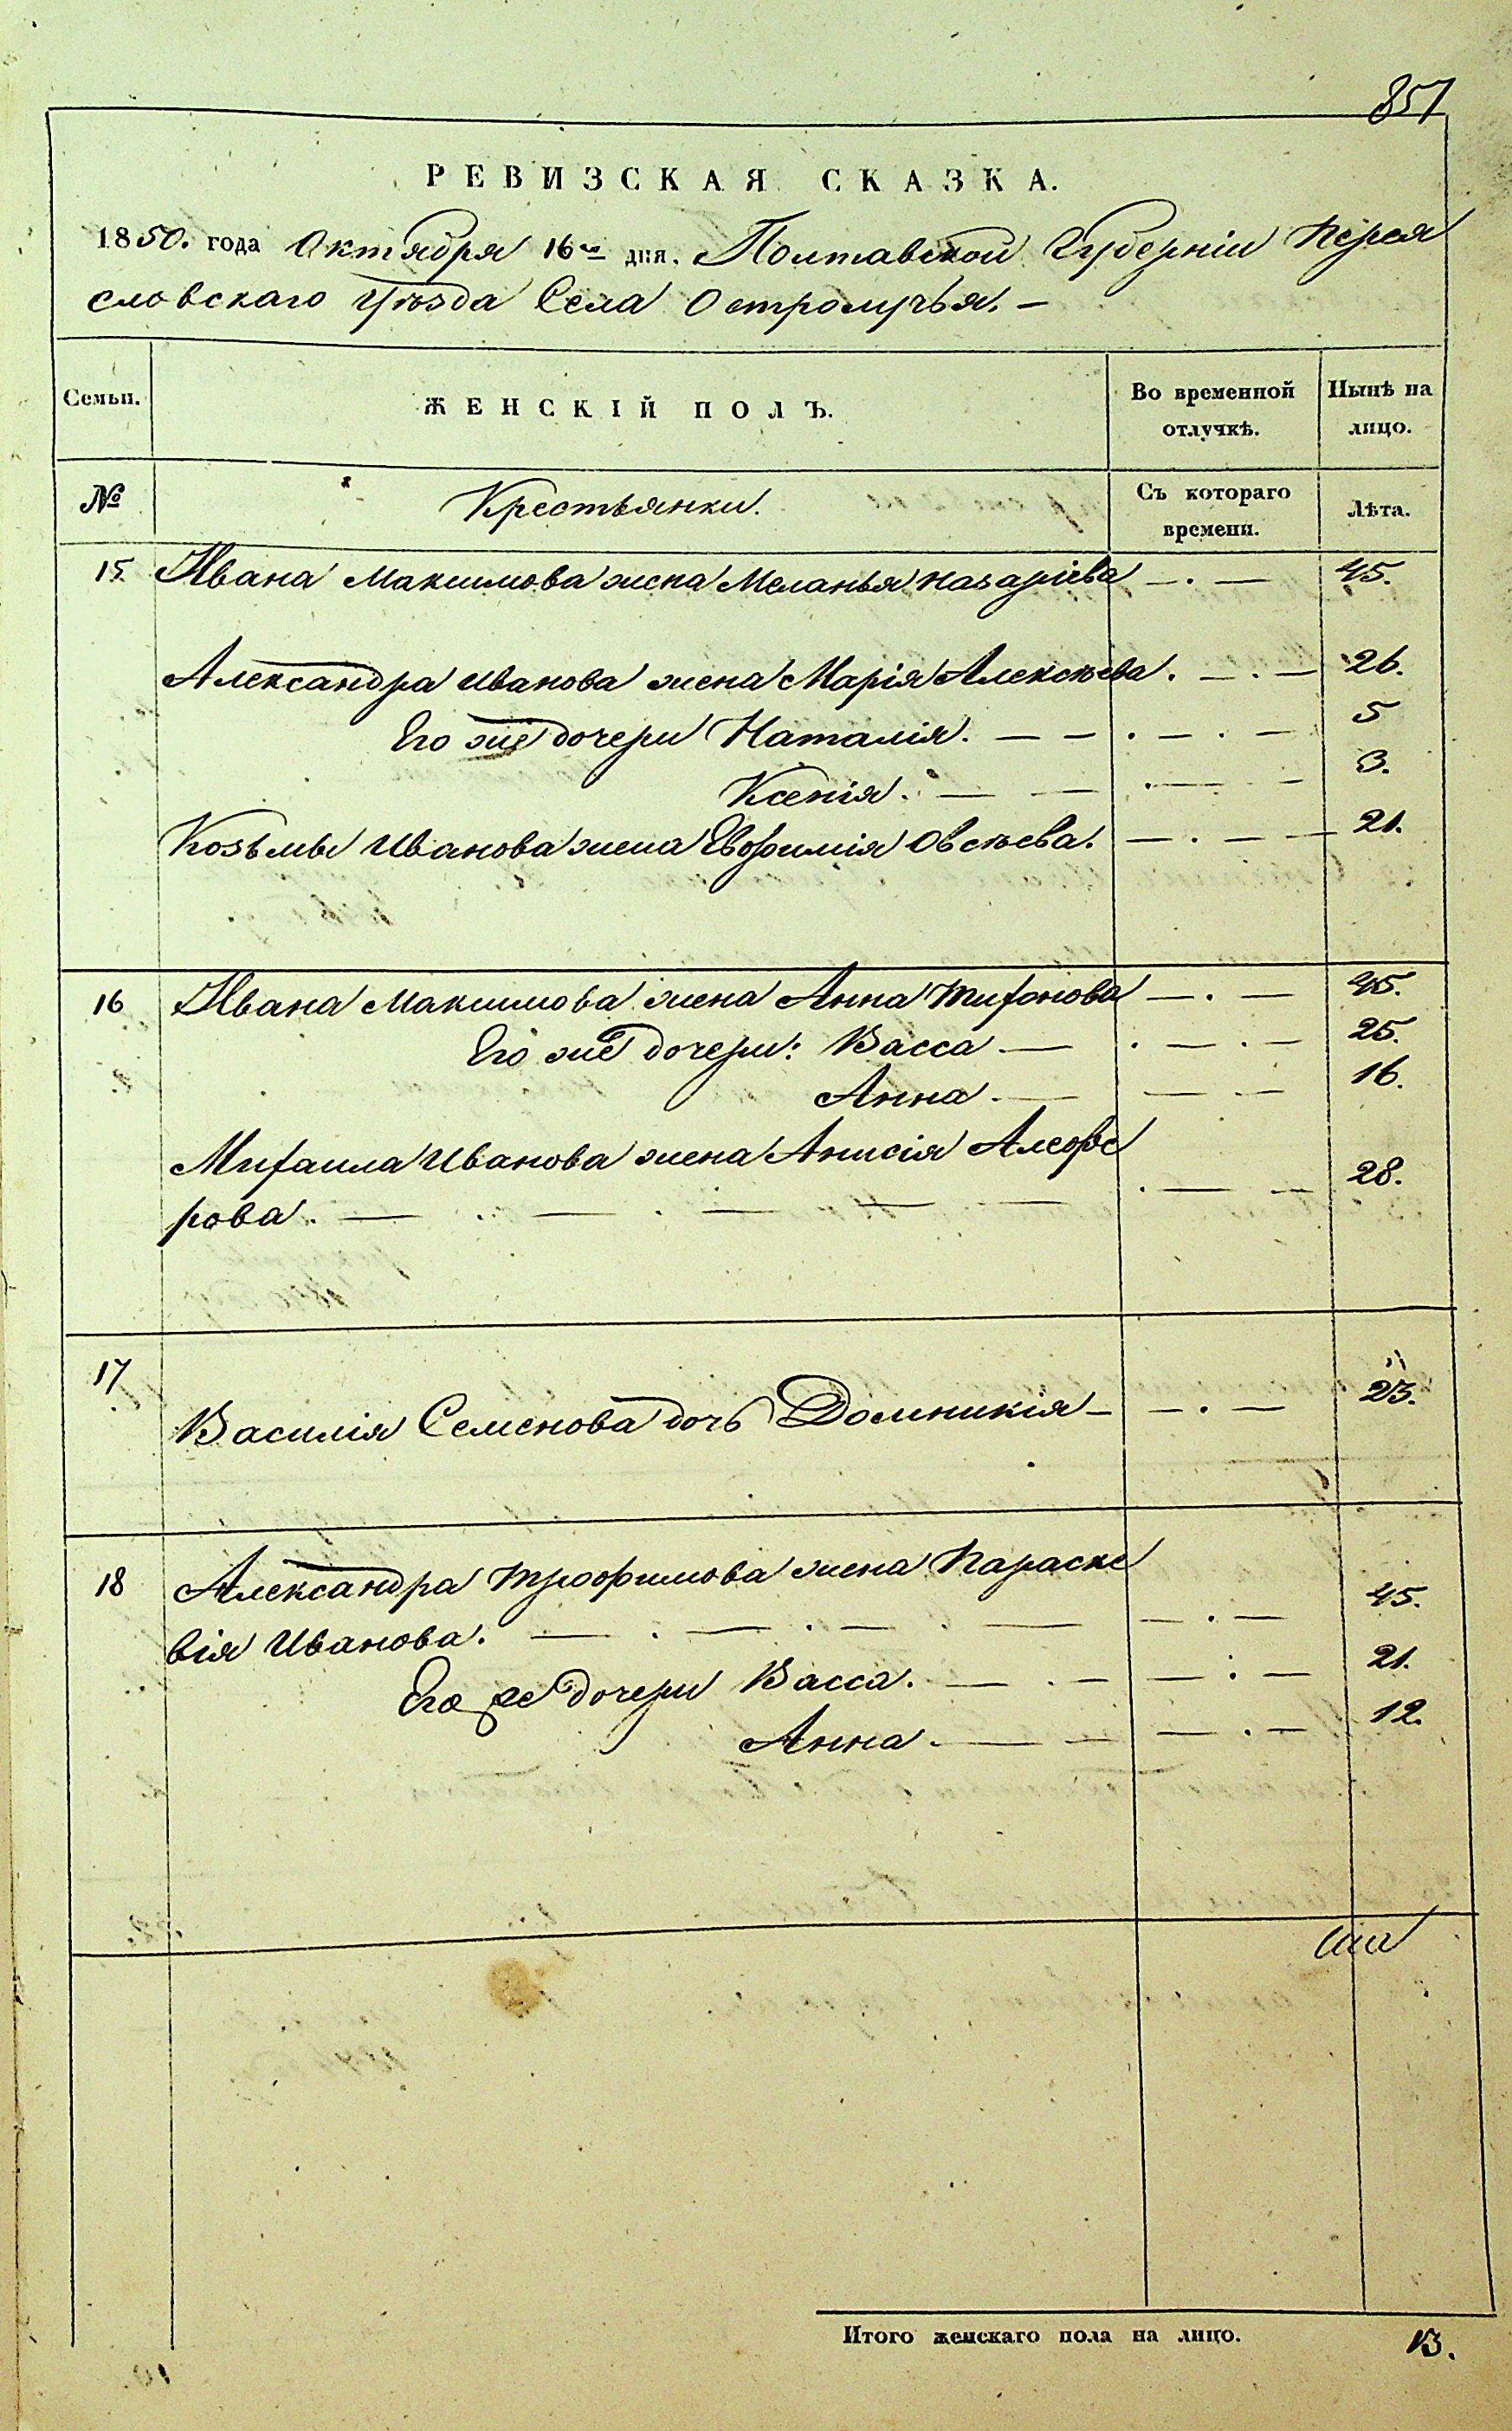 857
РЕВИЗСКАЯ СКАЗКА.
1850. года Октября 16го дня. Полтавской Губерніи Перея
словскаго Уѣзда Села Остролучья. —
Семьи.
ЖЕНСКІЙ ПОЛЪ.
Во временной отлучкѣ.
Нынѣ на лицо.
№
Крестьянки.
Съ котораго времени.
Лѣта.
15. Ивана Максимова жена Меланья Назаріева — . — 45.
Александра Иванова жена Марія Алексѣева. — . — 26.
Его же дочери Наталія. — — . — . — 5
Ксенія. — — . — — 3.
Козьмы Иванова жена Евфимія Овсѣева. — . — — 21.
16 Ивана Максимова жена Анна Тихонова — . — 45.
Его же дочери: Васса — . — . — 25.
Анна. — — . — 16.
Михаила Иванова жена Анисія Алефе
рова. — . — . — — — . — — 28.
17.
Василія Семенова дочь Домникія — — . — 23.
18 Александра Трофимова жена Параске
вія Иванова. — . — . — . — — . — 45.
Его же дочери Васса. — . — — . — 21.
Анна. — — — . — 12.
Итого женскаго пола на лицо. 13.